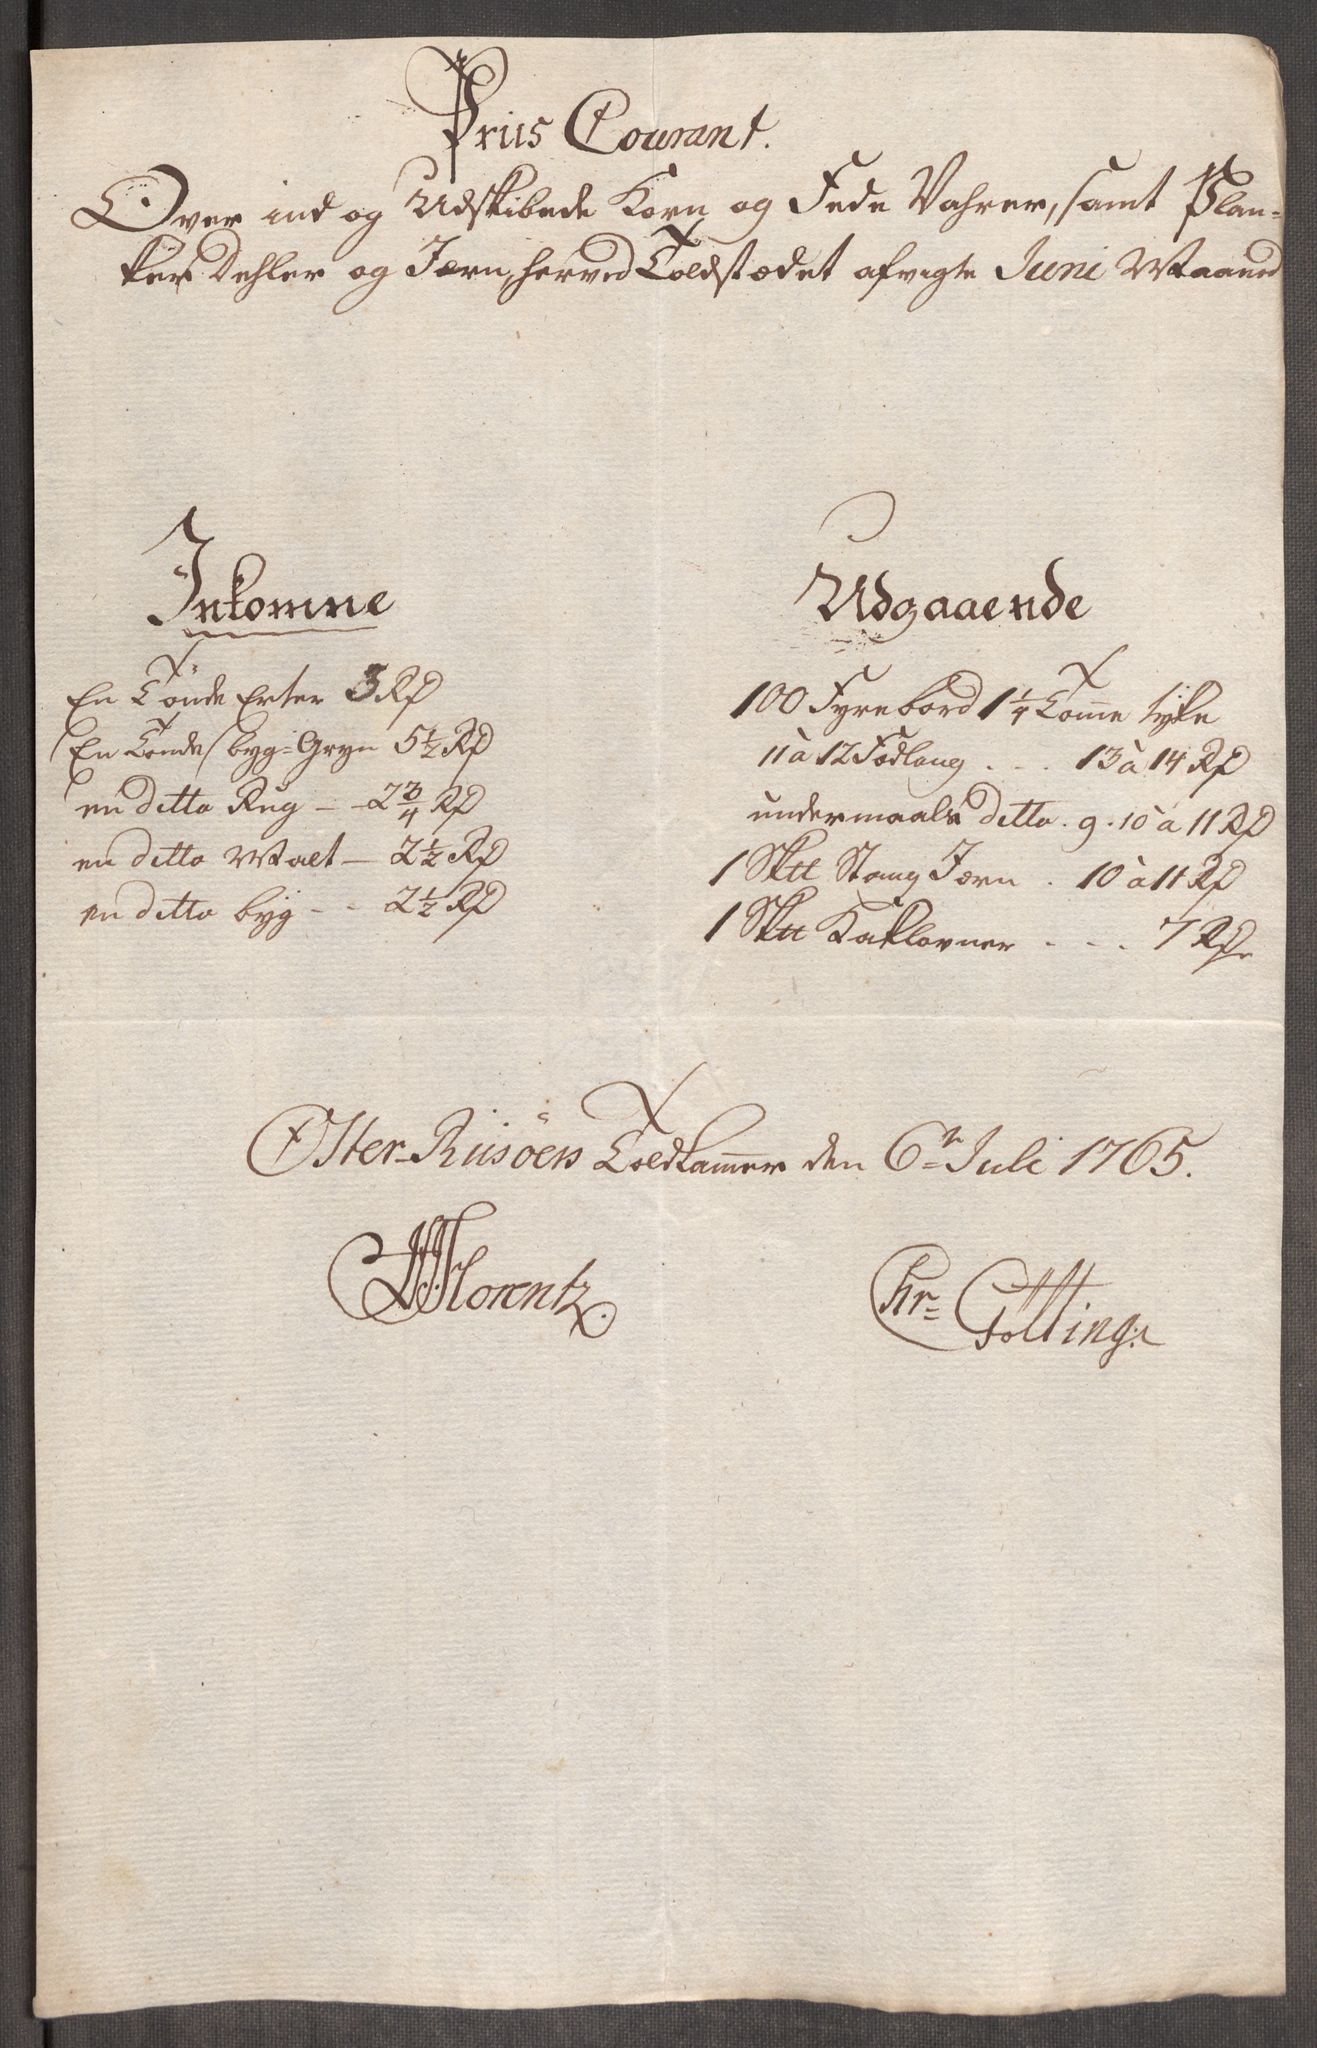 Priis Courant.
Over ind og Udskibede Korn og Fede Vahrer, samt Plan-
ker Dehler og Jern, herved Toldstædet afvigte Juni Maaned
Inkomne
En Tönde Erter 3 Rd
En Tönde byg-Gryn 5 1/2 Rd
en ditto Rug - 2 3/4 Rd
en ditto Malt - 2 1/2 Rd
en ditto byg - - 2 1/2 Rd
Udgaaende
100 Fyrebord 1 1/4 Tomme tyke
11 à 12 Fodlang . . . 13 à 14 Rd
undermaals ditto . 9 . 10 à 11 Rd
1 Sktt Stang Jern . 10 à 11 Rd
1 Sktt Kaklovner . . . 7 Rd
Öster-Riisöers Toldkammer den 6te Juli 1765.
Florentz
Chr= Götting